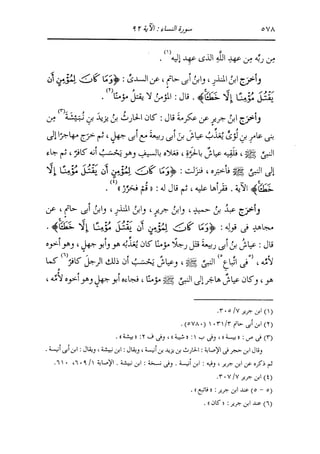 ٥٧٨ سورة النساء : الآية ٩٢
من ربِّه من عهدِ اللَّهِ الذى عهِد إليه(١) .
وأخرَج ابنُ المنذرِ ، وابنُ أبى حاتمٍ ، عن السدىِّ : ﴿وَمَا كَانَ لِمُؤْمِنٍ أَن
يَقْتُلَ مُؤْمِنًا إِلَّا خَطَـًٔا﴾ . قال : المؤمنُ لا يقتُلُ مؤمنًا(٢) .
وأخرَج ابنُ جريرٍ عن عكرمةَ قال : كان الحارثُ بنُ يزيدَ بنِ نُبَيْشةَ(٣) مِن
بنى عامرِ بنِ لُؤَىٍّ يُعذِّبُ عياشَ بنَ أبى ربيعةَ مع أبى جهلٍ ، ثم خرَج مهاجرًا إلى
النبىِّ ﷺ ، فلقِيه عياشٌ بالحَرَّةِ ، فعلاه بالسيفِ وهو يَحْسَبُ أنه كافرٌ ، ثم جاء
إلى النبىِّ ﷺ فأخبَره ، فنزلت : ﴿وَمَا كَانَ لِمُؤْمِنٍ أَن يَقْتُلَ مُؤْمِنًا إِلَّا
خَطَـًٔا﴾ الآية . فقرأها عليه ، ثم قال له : «قُمْ فحَرِّرْ»(٤) .
وأخرَج عبدُ بنُ حميدٍ ، وابنُ جريرٍ ، وابنُ المنذرِ ، وابنُ أبى حاتمٍ ، عن
مجاهدٍ فى قولِه : ﴿وَمَا كَانَ لِمُؤْمِنٍ أَن يَقْتُلَ مُؤْمِنًا إِلَّا خَطَـًٔا﴾ .
قال : عياشُ بنُ أبى ربيعةَ قتَل رجلًا مؤمنًا كان يُعذِّبُه هو وأبو جهلٍ ، وهو أخوه
لأمِّه ، (٥فى اتِّباعِ٥) النبىِّ ﷺ ، وعياشٌ يَحْسَبُ أن ذلك الرجلَ كافرٌ(٦) كما
هو ، وكان عياشٌ هاجَر إلى النبىِّ ﷺ مؤمنًا ، فجاءه أبو جهلٍ وهو أخوه لأُمِّه ،
(١) ابن جرير ٧/ ٣٠٥.
(٢) ابن أبى حاتم ٣/ ١٠٣١ (٥٧٨٠) .
(٣) فى ص : «بيسة» ، وفى ب ١ : «شيبة» ، وفى ف ٢ : «بيشة» .
وقال ابن حجر فى الإصابة : الحارث بن يزيد بن أنيسة ، ويقال : ابن نبيشة ، ويقال : ابن أبى أنيسة .
ثم ذكره عن ابن جرير ، وفيه : ابن أنيسة . وفى نسخة : ابن نبيشة . الإصابة ١/ ٦٠٩، ٦١٠.
(٤) ابن جرير ٧/ ٣٠٧.
(٥ - ٥) عند ابن جرير : «فاتبع» .
(٦) عند ابن جرير : «كان» .